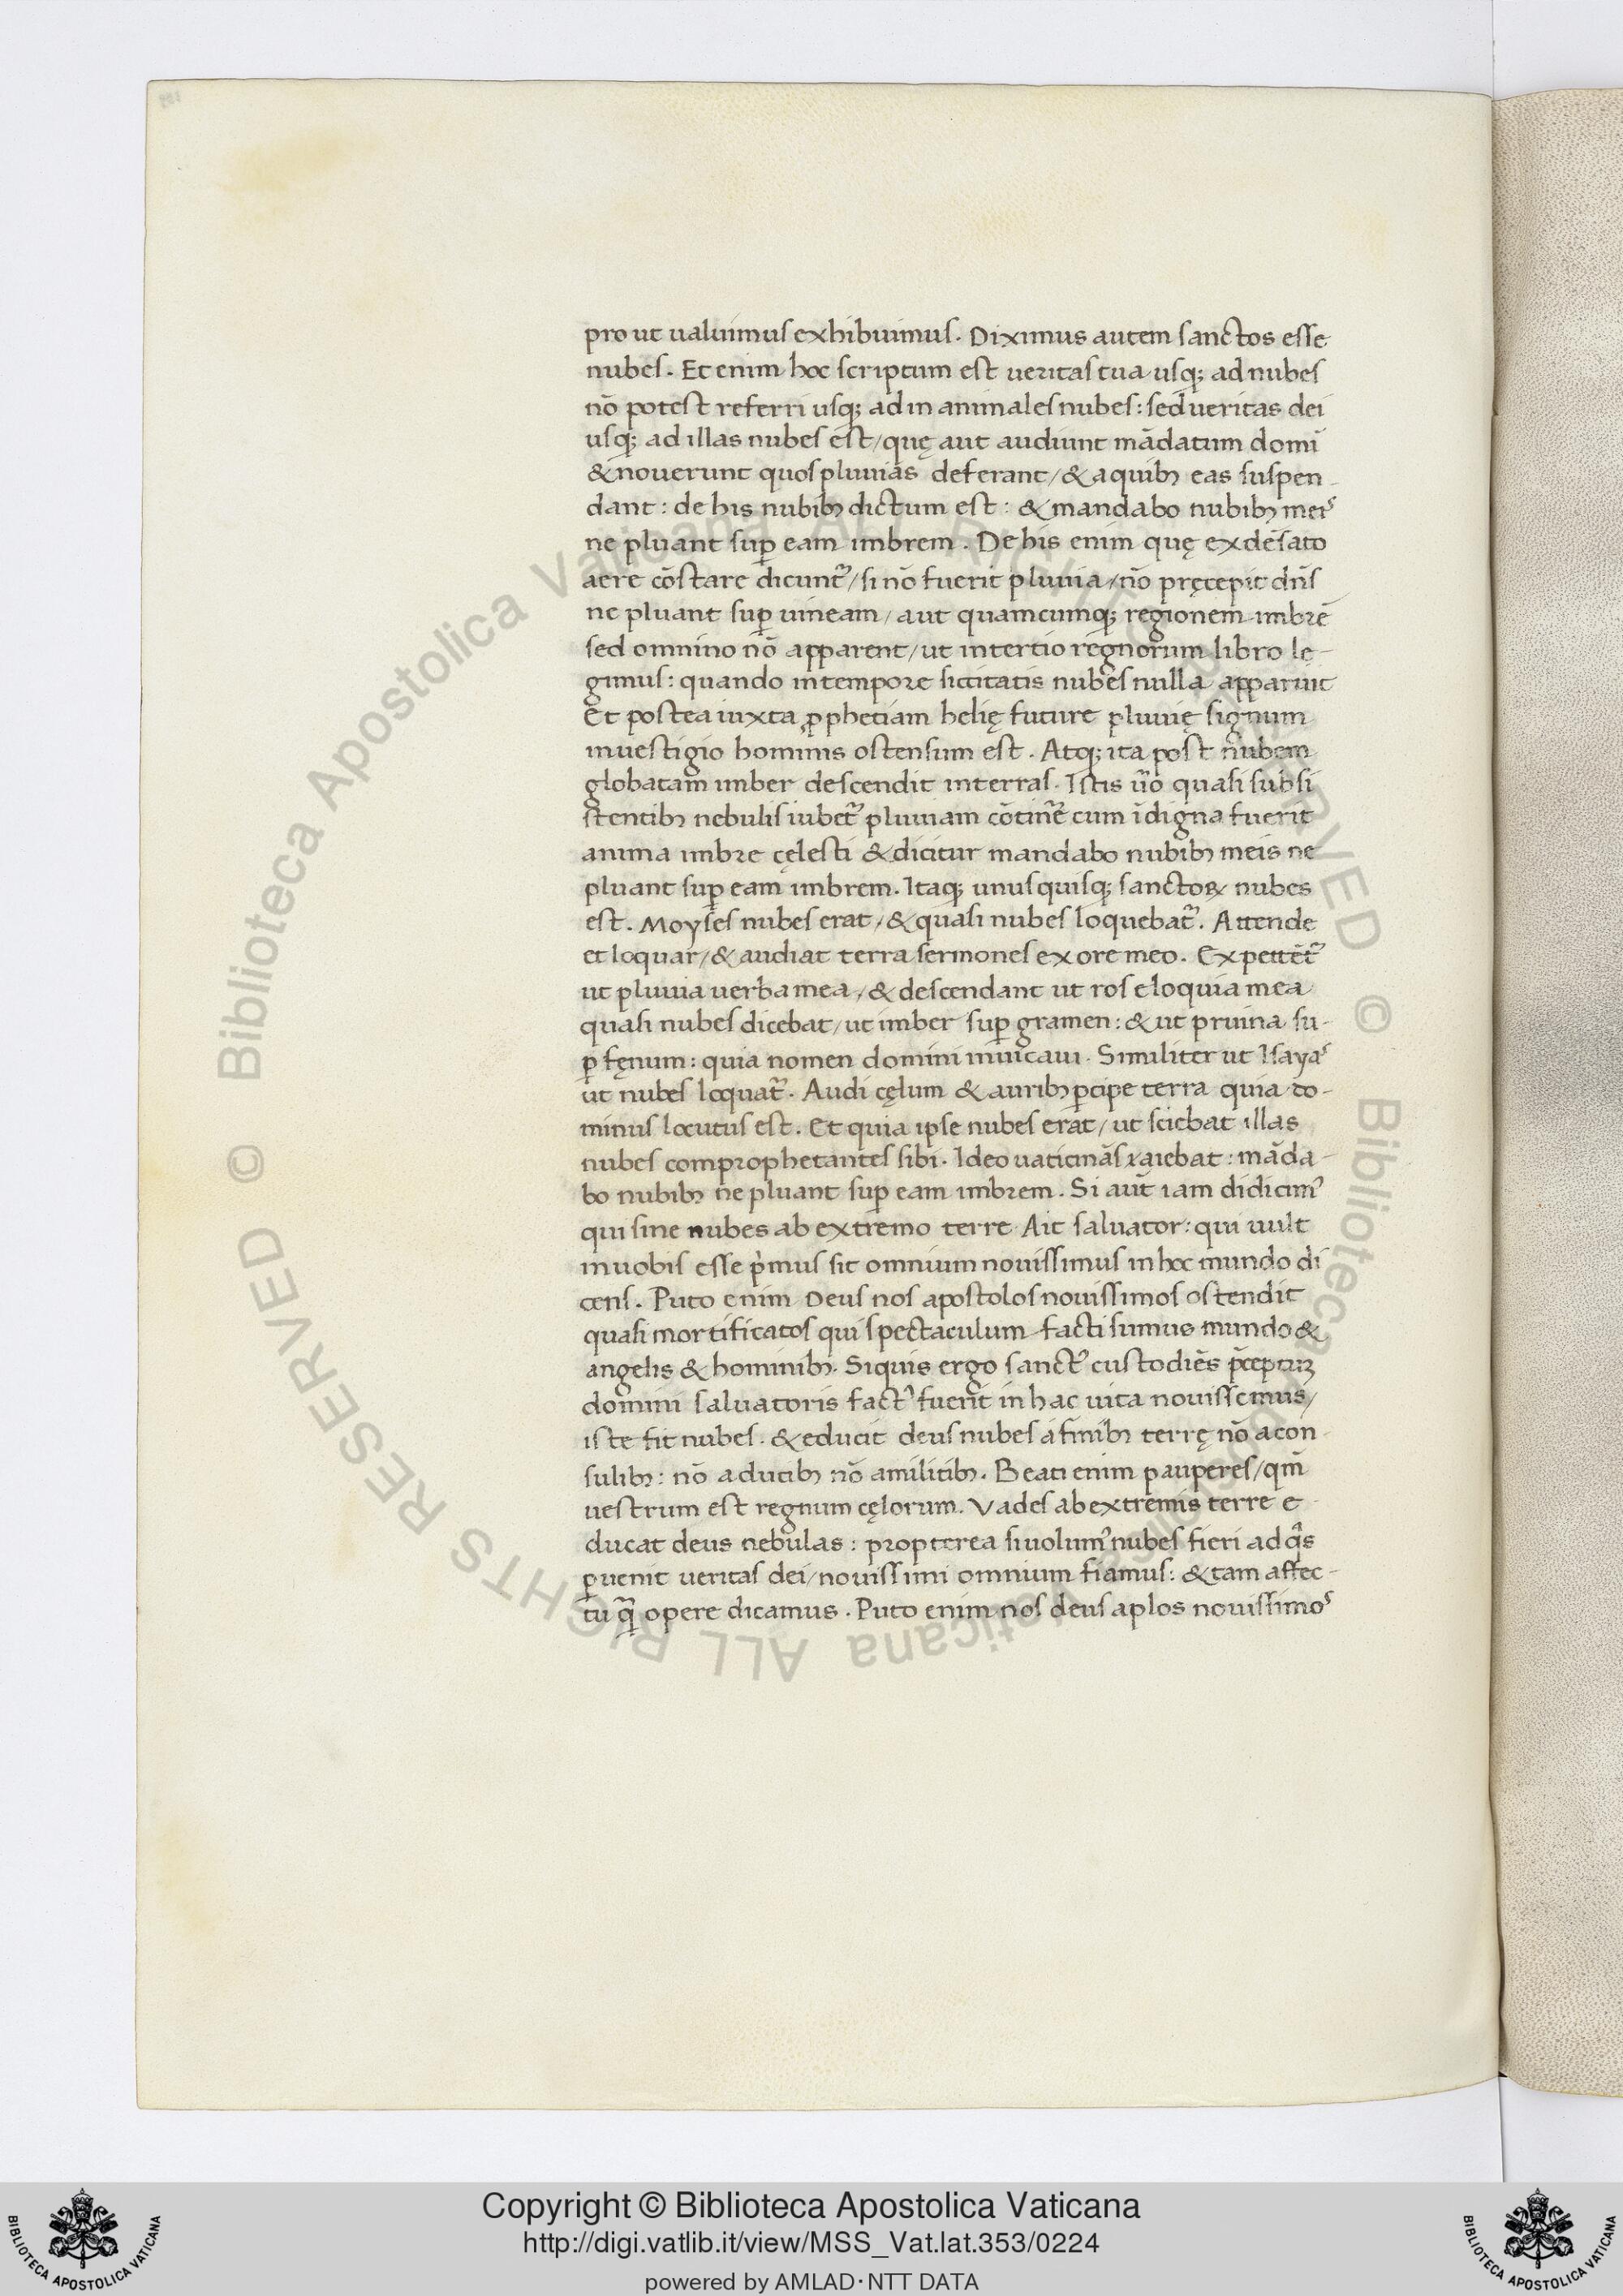 pro ut ualuimus exhibuimus. Diximus autem sanctos esse
nubes. Et enim hoc scriptum est ueritas tua usq; ad nubes
nō potest referri usq; ad in animales nubes: sed ueritas dei
usq; ad illas nubes est/ quę aut audiunt mādatum domī
& nouerunt quos pluuias deferant/ & a quibꝫ eas suspen-
dant: de his nubibꝫ dictum est: & mandabo nubibꝫ meis
ne pluant suꝑ eam imbrem. De his enim quę ex dēsato
aere cōstare dicunt᷑/ si nō fuerit pluuia/ nō pręcepit dn̄s
ne pluant suꝑ uineam/ aut quamcumq; regionem imbrē
sed omnino nō apparent/ ut in tertio regnorum libro le-
gimus: quando in tempore siccitatis nubes nulla apparuit
Et postea iuxta ꝓphetiam helię future pluuię signum
in uestigio hominis ostensum est. Atq; ita post nubem
globatam imber descendit in terras. Istis ūo quasi subsi
stentibꝫ nebulis iubet᷑ pluuiam cōtinē cum īdigna fuerit
anima imbre cęlesti & dicitur mandabo nubibꝫ meis ne
pluant suꝑ eam imbrem. Itaq; unusquisq; sanctoꝝ nubes
est. Moyses nubes erat/ & quasi nubes loquebat᷑. Attende
et loquar/ & audiat terra sermones ex ore meo. Expectēt᷑
ut pluuia uerba mea/ & descendant ut ros eloquia mea
quasi nubes dicebat/ ut imber suꝑ gramen: & ut pruina su-
ꝑ fęnum: quia nomen domini inuicaui. Similiter ut Isayas
ut nubes loquat᷑. Audi cęlum & auribꝫ ꝑcipe terra quia do-
minus locutus est. Et quia ipse nubes erat/ ut sciebat illas
nubes comprophetantes sibi. Ideo uaticinās aiebat: māda-
bo nubibꝫ ne pluant suꝑ eam imbrem. Si aut̄ iam didicimꝰ
qui sine nubes ab extremo terre Ait saluator: qui uult
in uobis esse p̍mus sit omnium nouissimus in hoc mundo di
cens. Puto enim Deus nos apostolos nouissimos ostendit
quasi mortificatos qui spectaculum facti sumus mundo &
angelis & hominibꝫ. Siquis ergo sanctꝰ custodiēs p̄ceptuꝫ
domini saluatoris factꝰ fuerit in hac uita nouissemus/
iste fit nubes. & educit deus nubes a finibꝫ terrę nō a con-
sulibꝫ: nō a ducibꝫ nō a militibꝫ. Beati enim pauperes/ qm̄
uestrum est regnum cęlorum. Vades ab extremis terre e-
ducat deus nebulas: propterea si uolumꝰ nubes fieri ad q̍s
ꝑuenit ueritas dei/ nouissimi omnium fiamus: & tam affec-
tu q̃ opere dicamus. Puto enim nos deus aplos nouissimos
Copyright © Biblioteca Apostolica Vaticana
http://digi.vatlib.it/view/MSS_Vat.lat.353/0224
powered by AMLAD·NTT DATA
© Biblioteca Apostolica Vaticana ALL RIGHTS RESERVED © Biblioteca Apostolica Vaticana ALL RIGHTS RESERVED
BIBLIOTECA APOSTOLICA VATICANA
BIBLIOTECA APOSTOLICA VATICANA